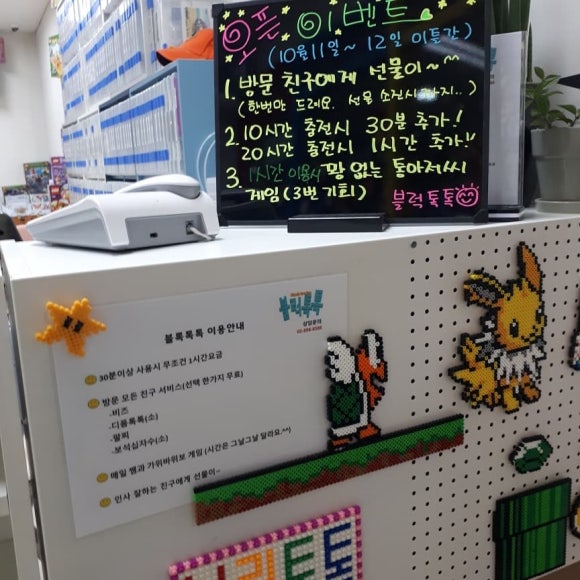 오픈 이벤트
(10월11일~12일 이틀간)
1. 방문 친구에게 선물이~^^
(한번만 드려요. 선물 소진시까지..)
2. 10시간 충전시 30분 추가!
20시간 충전시 1시간 추가!!
3. 1시간 이용시 꽝 없는 돌아저씨
게임(3번 기회)
블럭톡톡
블럭톡톡
상담문의
블록톡톡 이용안내
30분이상 사용시 무조건 1시간요금
방문 모든 친구 서비스(선택 한가지 무료)
-비즈
-디폼톡톡(소)
-팔찌
-보석십자수(소)
매일 쌤과 가위바위보 게임(시간은 그날그날 달라요.^^)
인사 잘하는 친구에게 선물이~